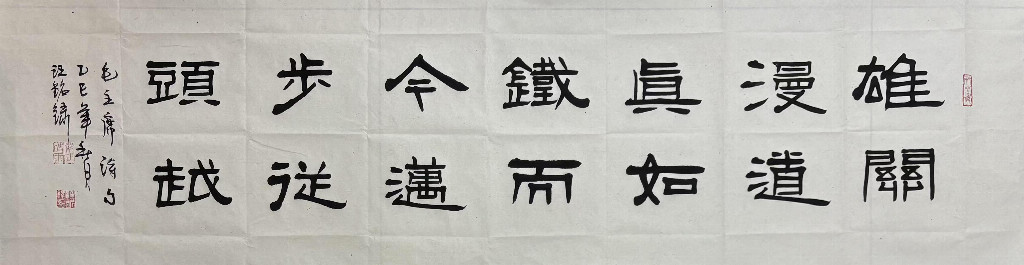 雄關
漫道
眞如
鐵而
今邁
步從
頭越
毛主席詩句
乙巳年春月
汪銘